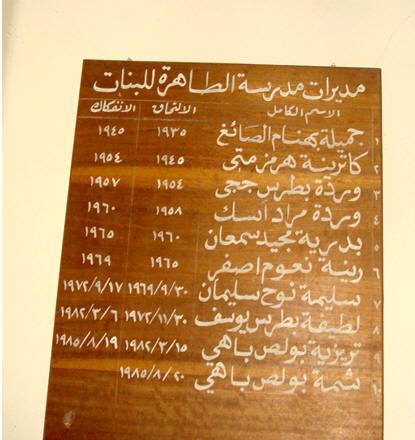 مديرات مدرسة الطاهرة للبنات
الاسم الكامل الالتحاق الانفكاك
١ جميلة بهنام الصائغ ١٩٣٥ ١٩٤٥
٢ كاترينة هرمز متى ١٩٤٥ ١٩٥٤
٣ وردة بطرس ججي ١٩٥٤ ١٩٥٧
٤ وردة مراد ايسك ١٩٥٨ ١٩٦٠
٥ بدرية مجيد سمعان ١٩٦٠ ١٩٦٥
٦ رينة نعوم اصفر ١٩٦٥ ١٩٦٩
٧ سليمة نوح سليمان ١٩٦٩/٩/٣٠ ١٩٧٢/٩/١٧
٨ لطيفة بطرس يوسف ١٩٧٢/١١/٣٠ ١٩٨٢/٣/٦
٩ تريزية بولص باهي ١٩٨٢/٣/١٥ ١٩٨٥/٨/١٩
شمة بولص باهي ١٩٨٥/٨/٢٠